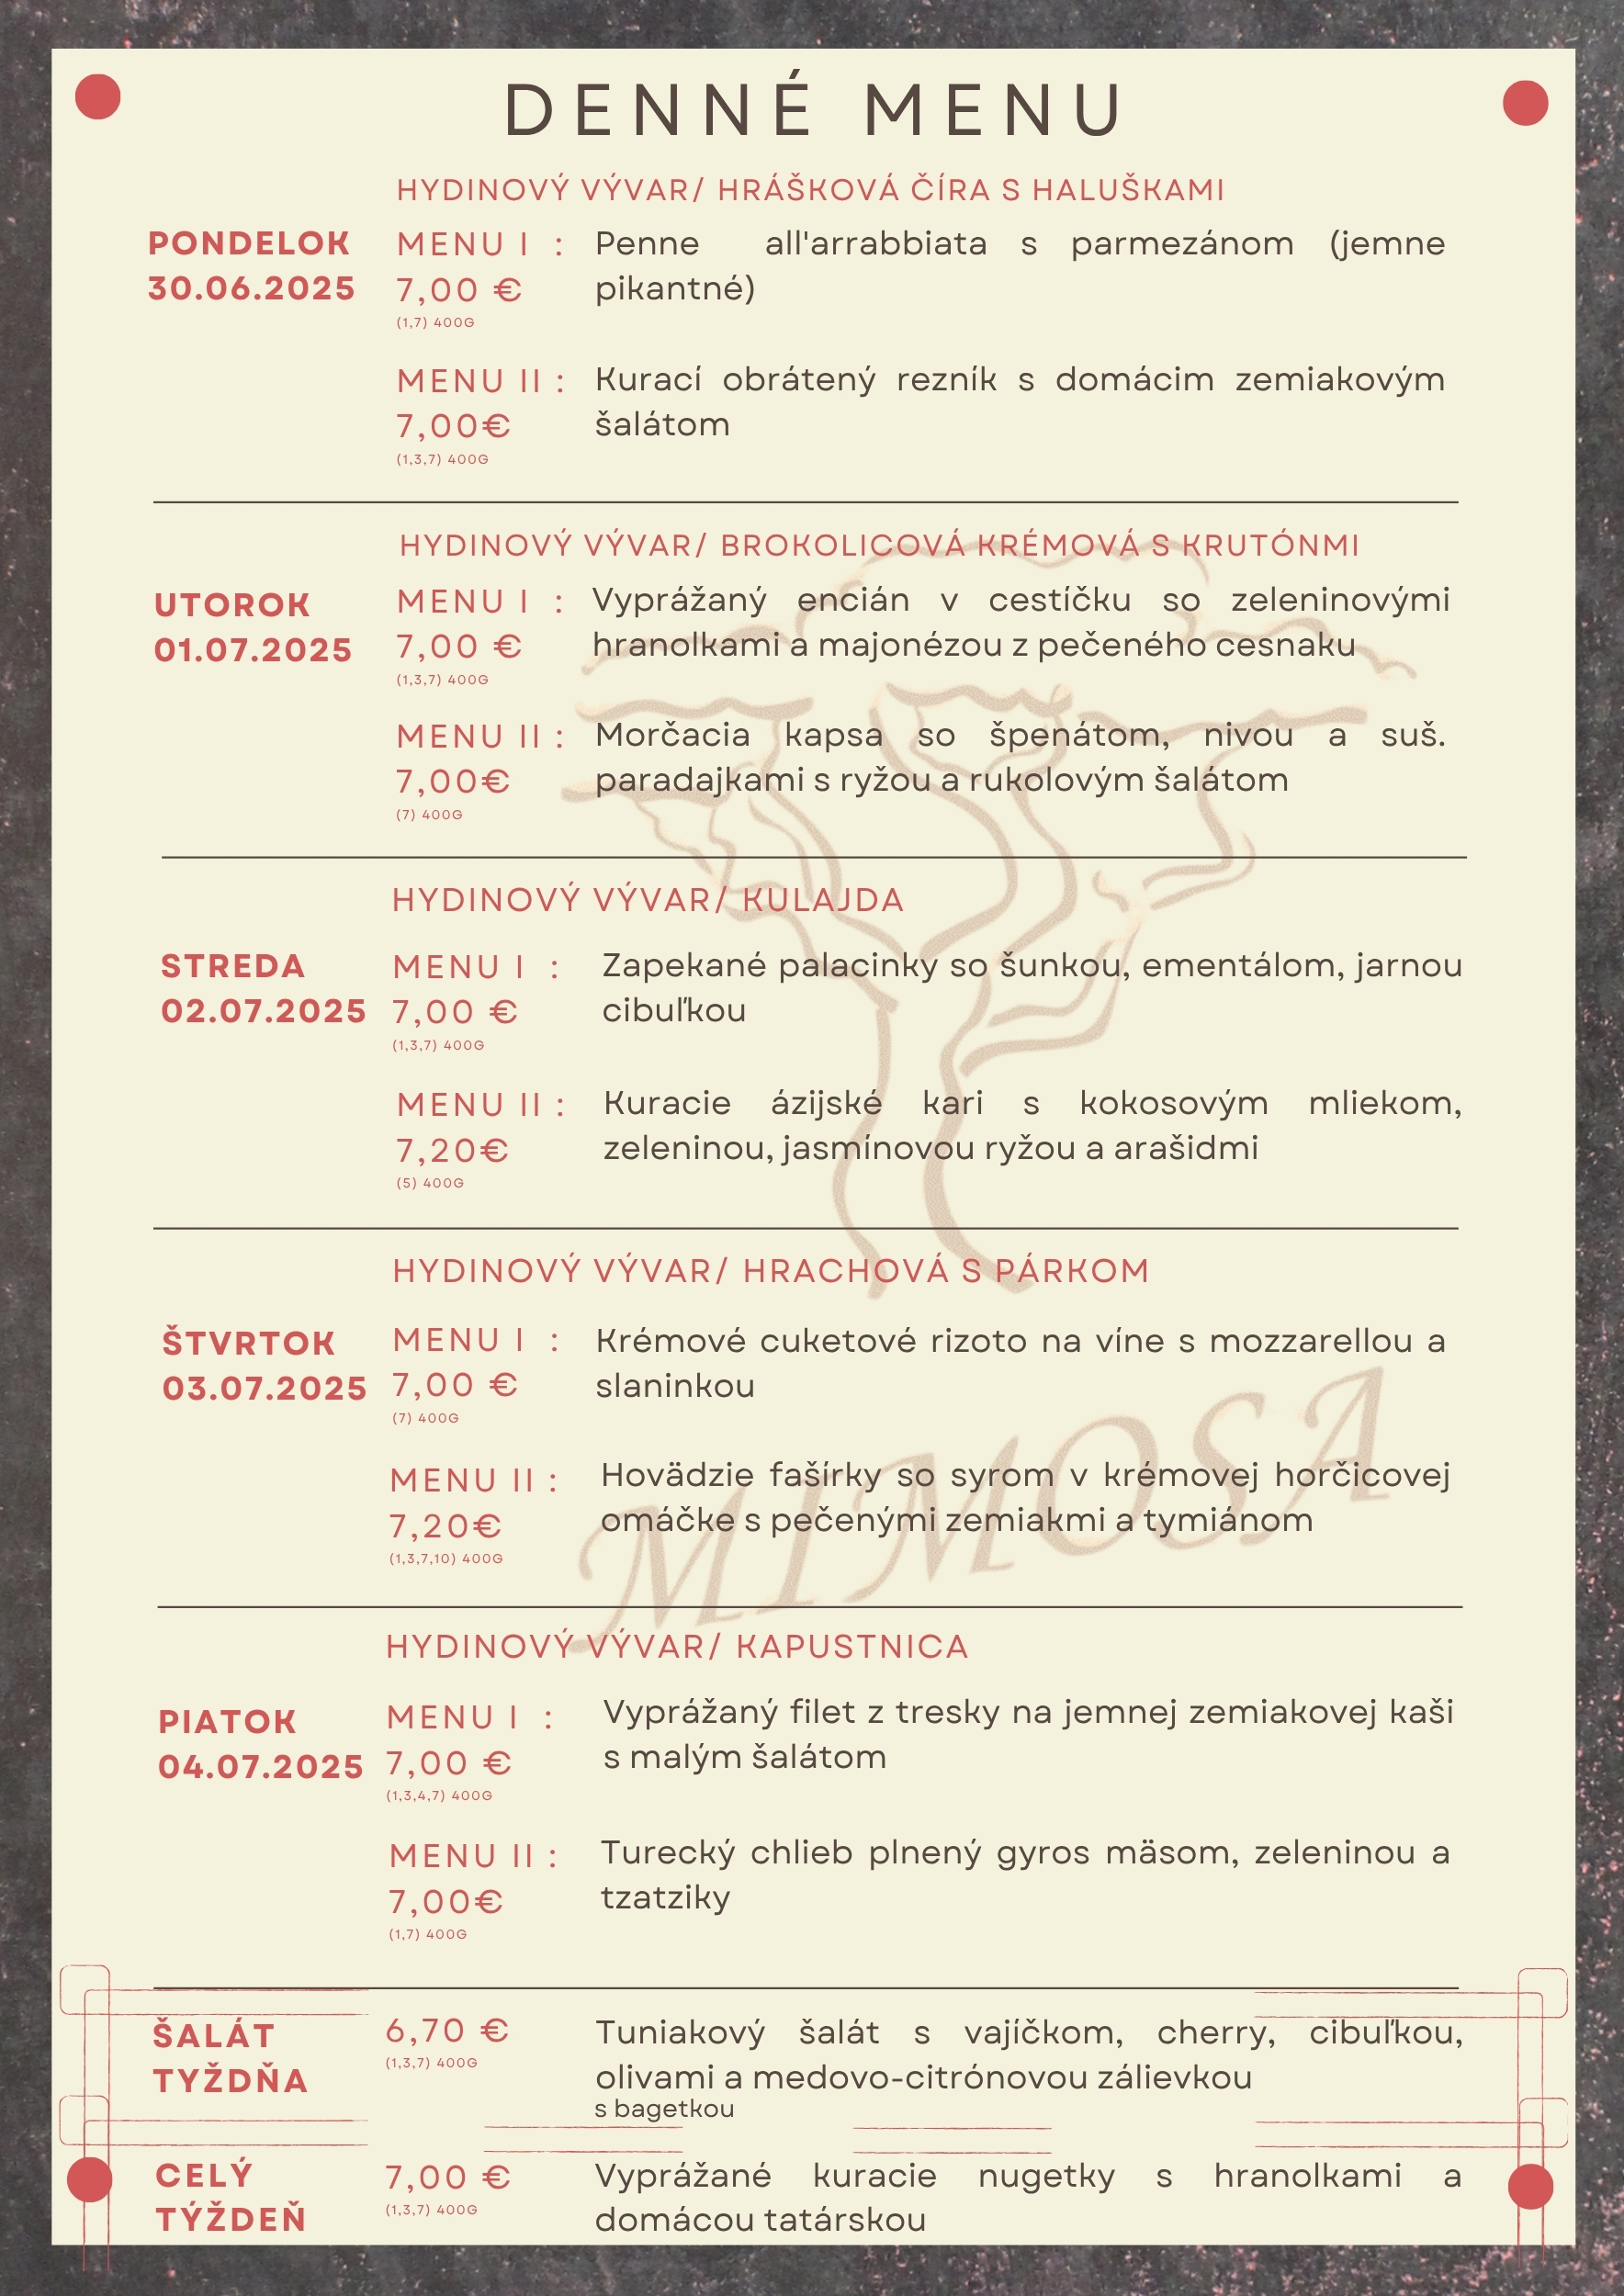 DENNÉ MENU
HYDINOVÝ VÝVAR/ HRÁŠKOVÁ ČÍRA S HALUŠKAMI
PONDELOK
30.06.2025
MENU I :
7,00 €
(1,7) 400G
Penne all'arrabbiata s parmezánom (jemne
pikantné)
MENU II :
7,00€
(1,3,7) 400G
Kurací obrátený rezník s domácim zemiakovým
šalátom
HYDINOVÝ VÝVAR/ BROKOLICOVÁ KRÉMOVÁ S KRUTÓNMI
UTOROK
01.07.2025
MENU I :
7,00 €
(1,3,7) 400G
Vyprážaný encián v cestíčku so zeleninovými
hranolkami a majonézou z pečeného cesnaku
MENU II :
7,00€
(7) 400G
Morčacia kapsa so špenátom, nivou a suš.
paradajkami s ryžou a rukolovým šalátom
HYDINOVÝ VÝVAR/ KULAJDA
STREDA
02.07.2025
MENU I :
7,00 €
(1,3,7) 400G
Zapekané palacinky so šunkou, ementálom, jarnou
cibuľkou
MENU II :
7,20€
(5) 400G
Kuracie ázijské kari s kokosovým mliekom,
zeleninou, jasmínovou ryžou a arašidmi
HYDINOVÝ VÝVAR/ HRACHOVÁ S PÁRKOM
ŠTVRTOK
03.07.2025
MENU I :
7,00 €
(7) 400G
Krémové cuketové rizoto na víne s mozzarellou a
slaninkou
MENU II :
7,20€
(1,3,7,10) 400G
Hovädzie fašírky so syrom v krémovej horčicovej
omáčke s pečenými zemiakmi a tymiánom
MIMOSA
HYDINOVÝ VÝVAR/ KAPUSTNICA
PIATOK
04.07.2025
MENU I :
7,00 €
(1,3,4,7) 400G
Vyprážaný filet z tresky na jemnej zemiakovej kaši
s malým šalátom
MENU II :
7,00€
(1,7) 400G
Turecký chlieb plnený gyros mäsom, zeleninou a
tzatziky
ŠALÁT
TYŽDŇA
6,70 €
(1,3,7) 400G
Tuniakový šalát s vajíčkom, cherry, cibuľkou,
olivami a medovo-citrónovou zálievkou
s bagetkou
CELÝ
TÝŽDEŇ
7,00 €
(1,3,7) 400G
Vyprážané kuracie nugetky s hranolkami a
domácou tatárskou